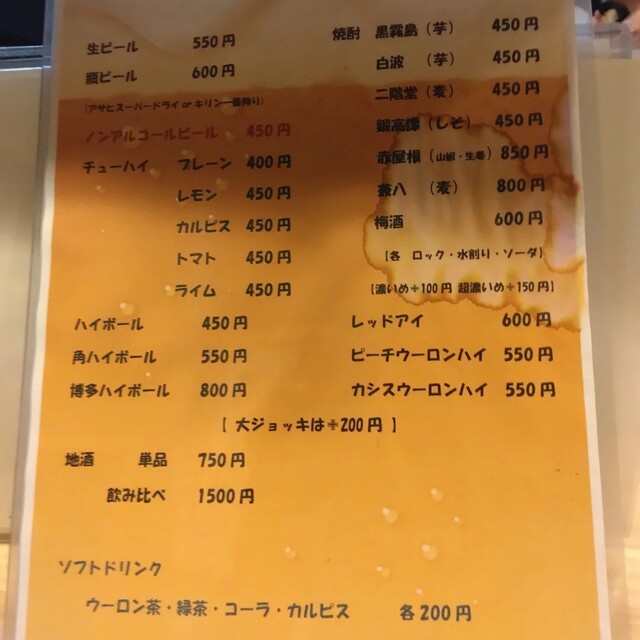 生ビール 550円
瓶ビール 600円
(アサヒスーパードライ or キリン一番搾り)
ノンアルコールビール 450円
チューハイ プレーン 400円
レモン 450円
カルピス 450円
トマト 450円
ライム 450円
ハイボール 450円
角ハイボール 550円
博多ハイボール 800円
焼酎 黒霧島(芋) 450円
白波 (芋) 450円
二階堂(麦) 450円
鍛高譚(しそ) 450円
赤屋根(山椒・生姜) 850円
兼八 (麦) 800円
梅酒 600円
【各 ロック・水割り・ソーダ】
【濃いめ+100円 超濃いめ+150円】
レッドアイ 600円
ピーチウーロンハイ 550円
カシスウーロンハイ 550円
【 大ジョッキは+200円 】
地酒 単品 750円
飲み比べ 1500円
ソフトドリンク
ウーロン茶・緑茶・コーラ・カルピス 各200円